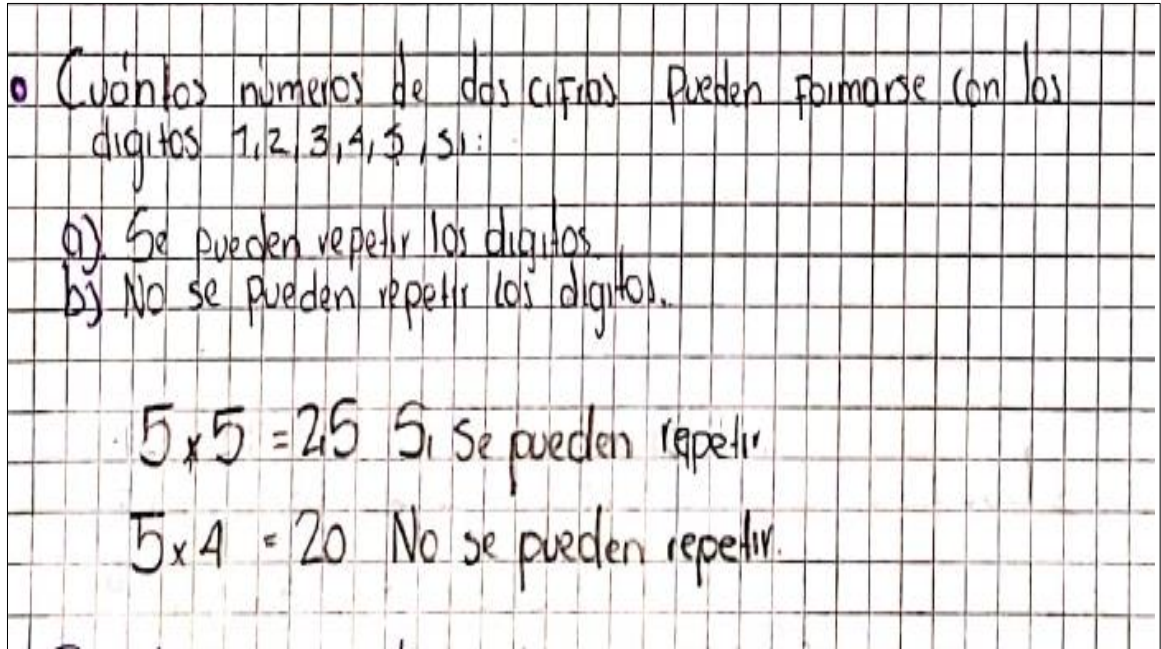 Cuántos números de dos cifras pueden formarse con los
digitos 1,2,3,4,5, si:
a). Se pueden repetir los digitos.
b) No se pueden repetir los digitos.
5 x 5 = 25 Si se pueden repetir
5 x 4 = 20 No se pueden repetir.